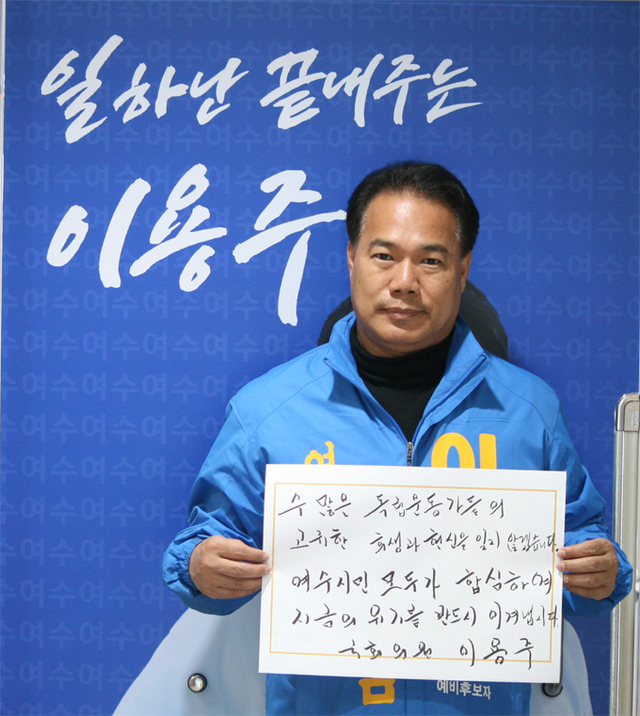 일하난 끝내주는
이용주
여수여수여수여수여수
여
이
수 많은 독립운동가들의
고귀한 희생과 헌신을 잊지 않겠습니다.
여수시민 모두가 합심하여
지금의 위기를 반드시 이겨냅시다.
국회의원 이용주
예비후보자